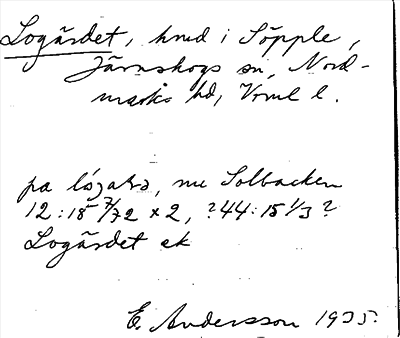 Logärdet, hmd i Söpple,
Järnskogs sn, Nord-
marks hd, Vrml l.
pa lógaɫɘ, nu Solbacken
12:18 7/72 x 2, ?44:15 1/3 ?
Logärdet ek
E. Andersson 1935.